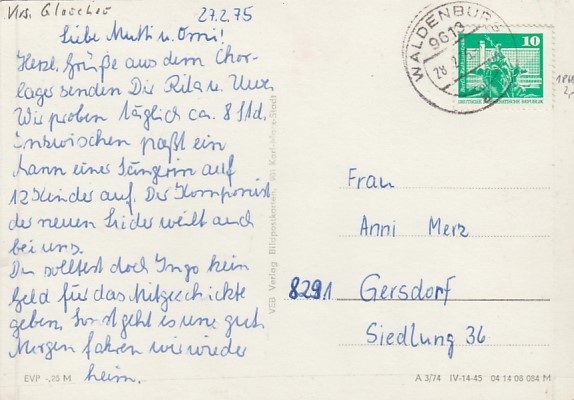 27.2.75
Liebe Mutti u. Omi!
Herzl. Grüße aus dem Chor-
lager senden Dir Rita u. Uwe.
Wir proben täglich ca. 8 Std.
Inzwischen paßt ein
Mann einer Sängerin auf
12 Kinder auf. Der Komponist
der neuen Lieder weilt auch
bei uns.
Du solltest doch Ingo kein
Geld für das Mitgeschickte
geben. Sonst geht es uns gut.
Morgen fahren wir wieder
heim.
EVP -,25 M
VEB Verlag Bildpostkarten, 901 Karl-Marx-Stadt
WALDENBURG
9613
28.2.
10
DEUTSCHE DEMOKRATISCHE REPUBLIK
Frau
Anni Merz
8291 Gersdorf
Siedlung 36
A 3/74 IV-14-45 04 14 08 084 M